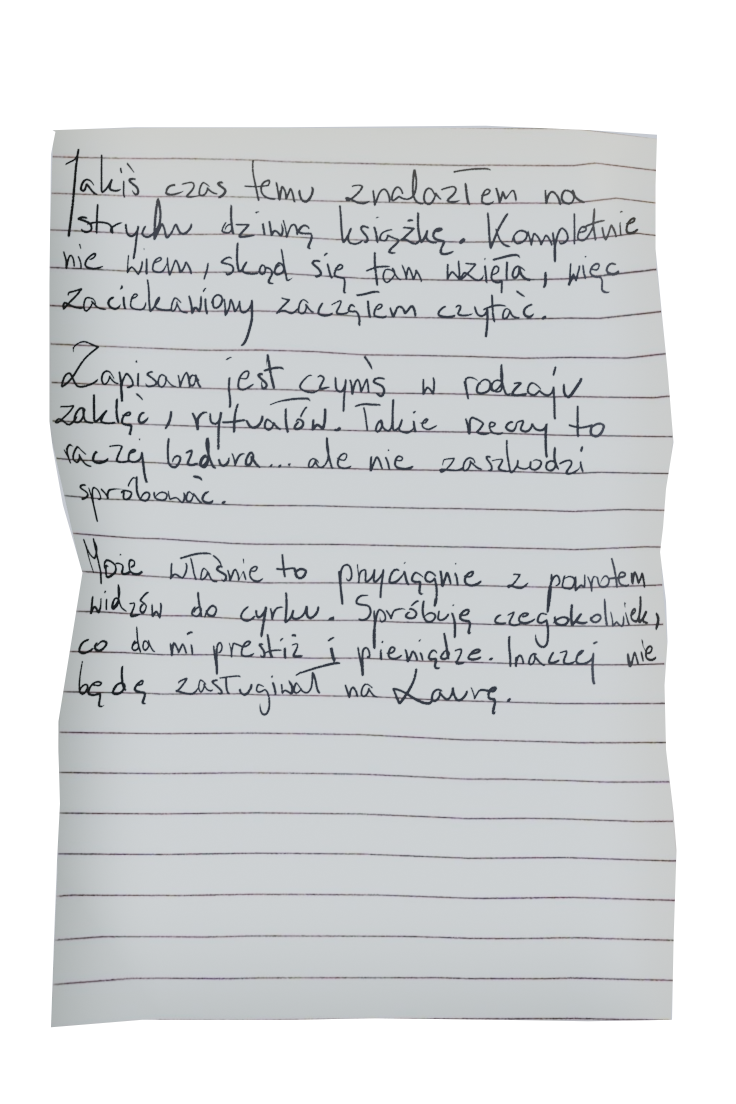 Jakiś czas temu znalazłem na
strychu dziwną książkę. Kompletnie
nie wiem, skąd się tam wzięła, więc
zaciekawiony zacząłem czytać.
Zapisana jest czymś w rodzaju
zaklęć, rytuałów. Takie rzeczy to
raczej bzdura... ale nie zaszkodzi
spróbować.
Może właśnie to przyciągnie z powrotem
widzów do cyrku. Spróbuję czegokolwiek,
co da mi prestiż i pieniądze. Inaczej nie
będę zasługiwał na Laurę.